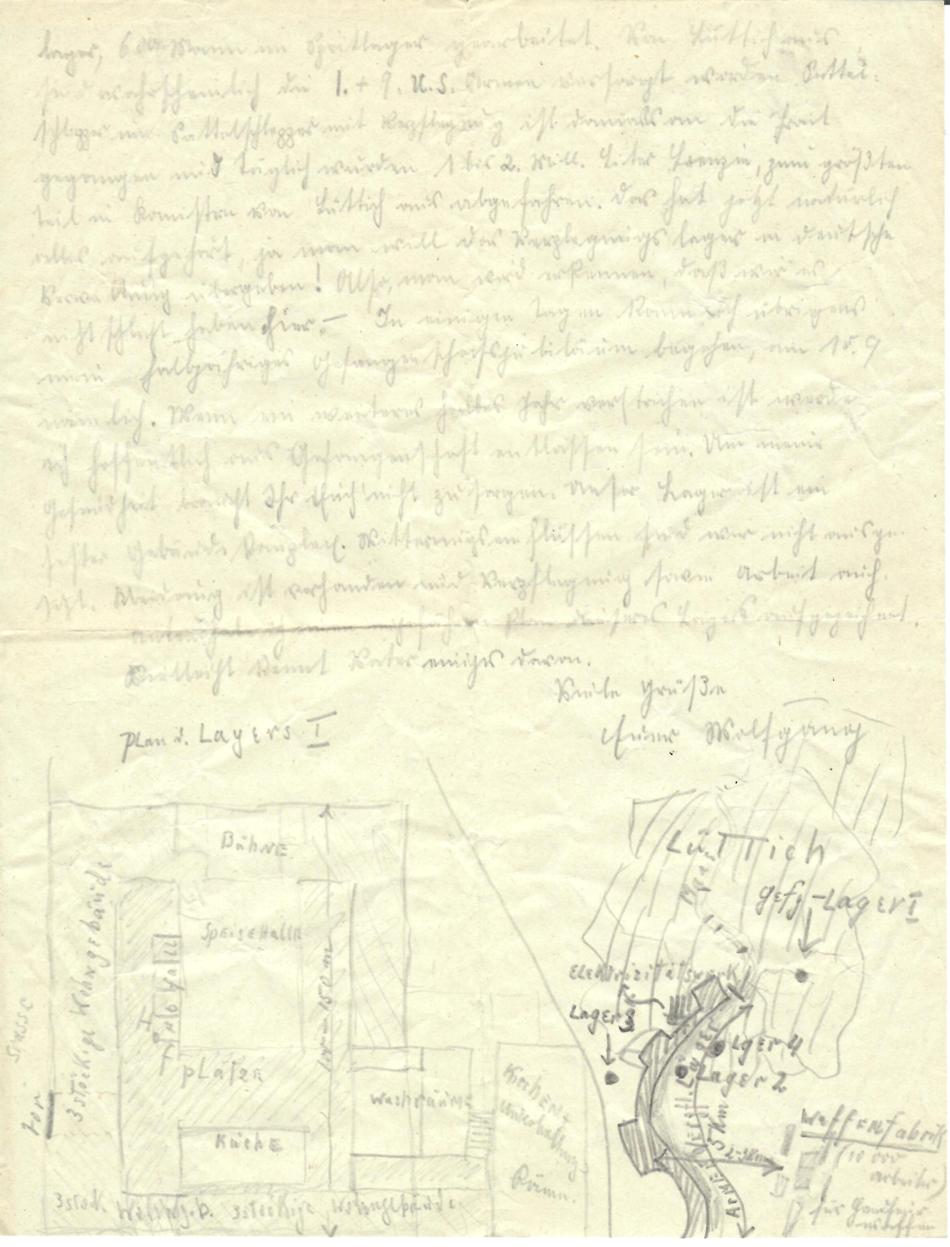 lager, 600 Mann im Spritlager gearbeitet. Von Lüttich aus
sind wahrscheinlich die 1. + 9. U.S. Armee versorgt worden Sattel-
schlepper um Sattelschlepper mit Verpflegung ist damals an die Front
gegangen und täglich wurden 1 bis 2. Mill. Liter Benzin, zum größten
teil in Kanistern von Lüttich aus abgefahren. Das hat jetzt natürlich
alles aufgehört, ja man will das Verpflegungslager in deutsche
Verwaltung übergeben! Also, man wird erkennen, daß wir es
nicht schlecht haben hier. – In einigen Tagen kann ich übrigens
mein halbjähriges Gefangenschaftsjubiläum begehen, am 15.9
nämlich. Wenn ein weiteres halbes Jahr verstrichen ist werde
ich hoffentlich aus Gefangenschaft entlassen sein. Um meine
Gesundheit braucht Ihr Euch nicht zu sorgen. Unser Lager ist ein
fester Gebäudekomplex. Witterungseinflüssen sind wir nicht ausge-
setzt. Kleidung ist vorhanden und Verpflegung sowie Arbeit auch.
Plan unseres Lagers aufgezeichnet.
Vielleicht kennt Vater einiges davon.
Viele Grüße
Euer Wolfgang
Plan d. Lagers I
Bühne
Speisehalle
3stöckige Wohngebäude
Strasse
Tor
Platze
Küche
Waschräume
150 m
3stöckige Wohngebäude
Lüttich
gefg-Lager I
Elektrizitätswerk
Lager 3
Lager 4
Lager 2
5 km
2-3km
Waffenfabrik
(10 000
arbeiter)
für Handfeuer
waffen